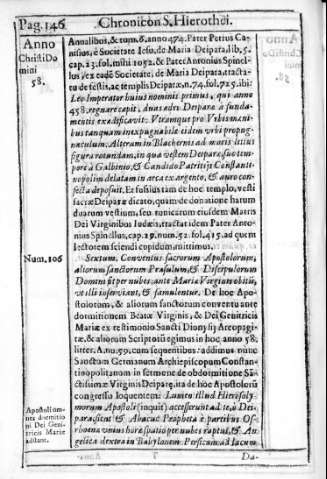 Pag. 146. Chronicon S. Hierothei.
Anno
Christi Do
mini
58.
Annalibus, & tom. 6. anno 474. Pater Petrus Ca-
nisius, è Societate Iesu, de Maria Deipara, lib. 5.
cap. 23. fol. mihi 1052. & Pater Antonius Spinel-
lus, ex eadē Societate, de Maria Deipara, tracta-
tu de festis, ac templis Deiparæ, n. 74. fol. 725. ibi:
Leo Imperator huius nominis primus, qui anno
458. regnare cœpit, duas ædes Deiparæ à funda-
mentis exædificavit: Vtramque pro Vrbis mœni-
bus tanquam inexpugnabile eidem vrbi propug-
naculum. Alteram in Blachernis ad maris littus
figura rotundam, in qua vestem Deiparæ, suo tem-
pore à Galbinio, & Candido Patritijs Constanti-
nopolim delatam in arca ex argento, & auro confe-
cta deposuit. Et fusius tam de hoc templo, vesti
sacræ Deiparæ dicato, quàm de donatione harum
duarum vestium, seu tunicarum eiusdem Matris
Dei Virginibus Iudæis, tractat idem Pater Anto-
nius Spinellus, cap. 29. num. 52. fol. 415. ad quem
lectorem sciendi cupidum mittimus.
Num. 106
Sextum. Conventus sacrorum Apostolorum,
aliorum sanctorum Præsulum, & Discipulorum
Domini super nubes ante Mariæ Virginis obitū,
vt illi inserviant, & famulentur. De hoc Apo-
stolorum, & aliorum sanctorum conventu ante
dormitionem Beatæ Virginis, & Dei Genitricis
Mariæ ex testimonio Sancti Dionysij Areopagi-
tæ, & aliorum Scriptorū egimus in hoc anno 58.
litter. A. nu. 59. cum sequentibus: addimus nunc
Sanctum Germanum Archiepiscopum Constan-
tinopolitanum in sermone de obdormitione Sā-
ctissimæ Virginis Deiparę, ita de hoc Apostolorū
congressu loquentem:
morum Apostoli (inquit) accesserunt ad te, ô Dei-
para; sicut & Abacuc Propheta
Apostoli om-
nes dormitio
ni Dei Geni-
tricis Mariæ
adstant.
Da-